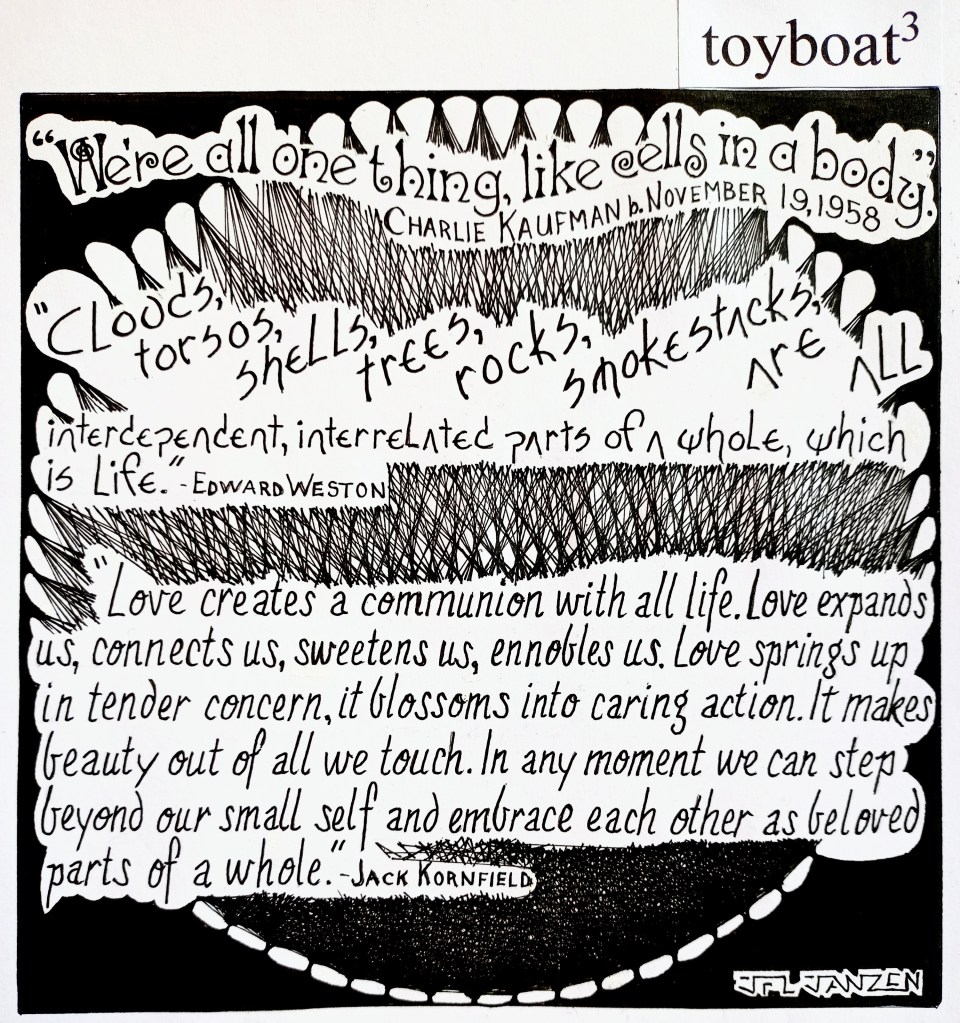 toyboat³
"We're all one thing, like cells in a body."
CHARLIE KAUFMAN b. NOVEMBER 19, 1958
"CLouds, torsos, sheLLs, trees, rocks, smokestacks, are aLL
interdependent, interreLated parts of a whoLe, which
is Life." - EDWARD WESTON
"Love creates a communion with all life. Love expands
us, connects us, sweetens us, ennobles us. Love springs up
in tender concern, it blossoms into caring action. It makes
beauty out of all we touch. In any moment we can step
beyond our small self and embrace each other as beloved
parts of a whole." - JACK KORNFIELD
JFL JANZEN